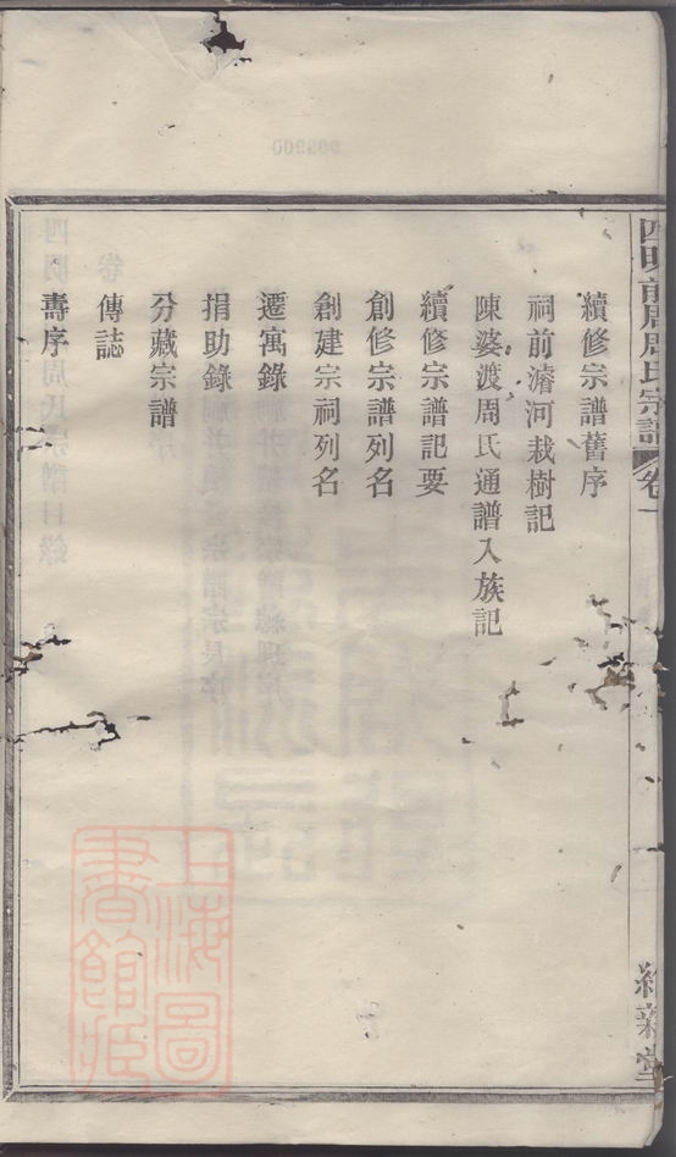 四明前周周氏宗譜 卷一
續修宗譜舊序
祠前濬河栽樹記
陳婆渡周氏通譜入族記
續修宗譜記要
創修宗譜列名
創建宗祠列名
遷寓錄
捐助錄
分藏宗譜
傳誌
壽序
上海圖
書館藏